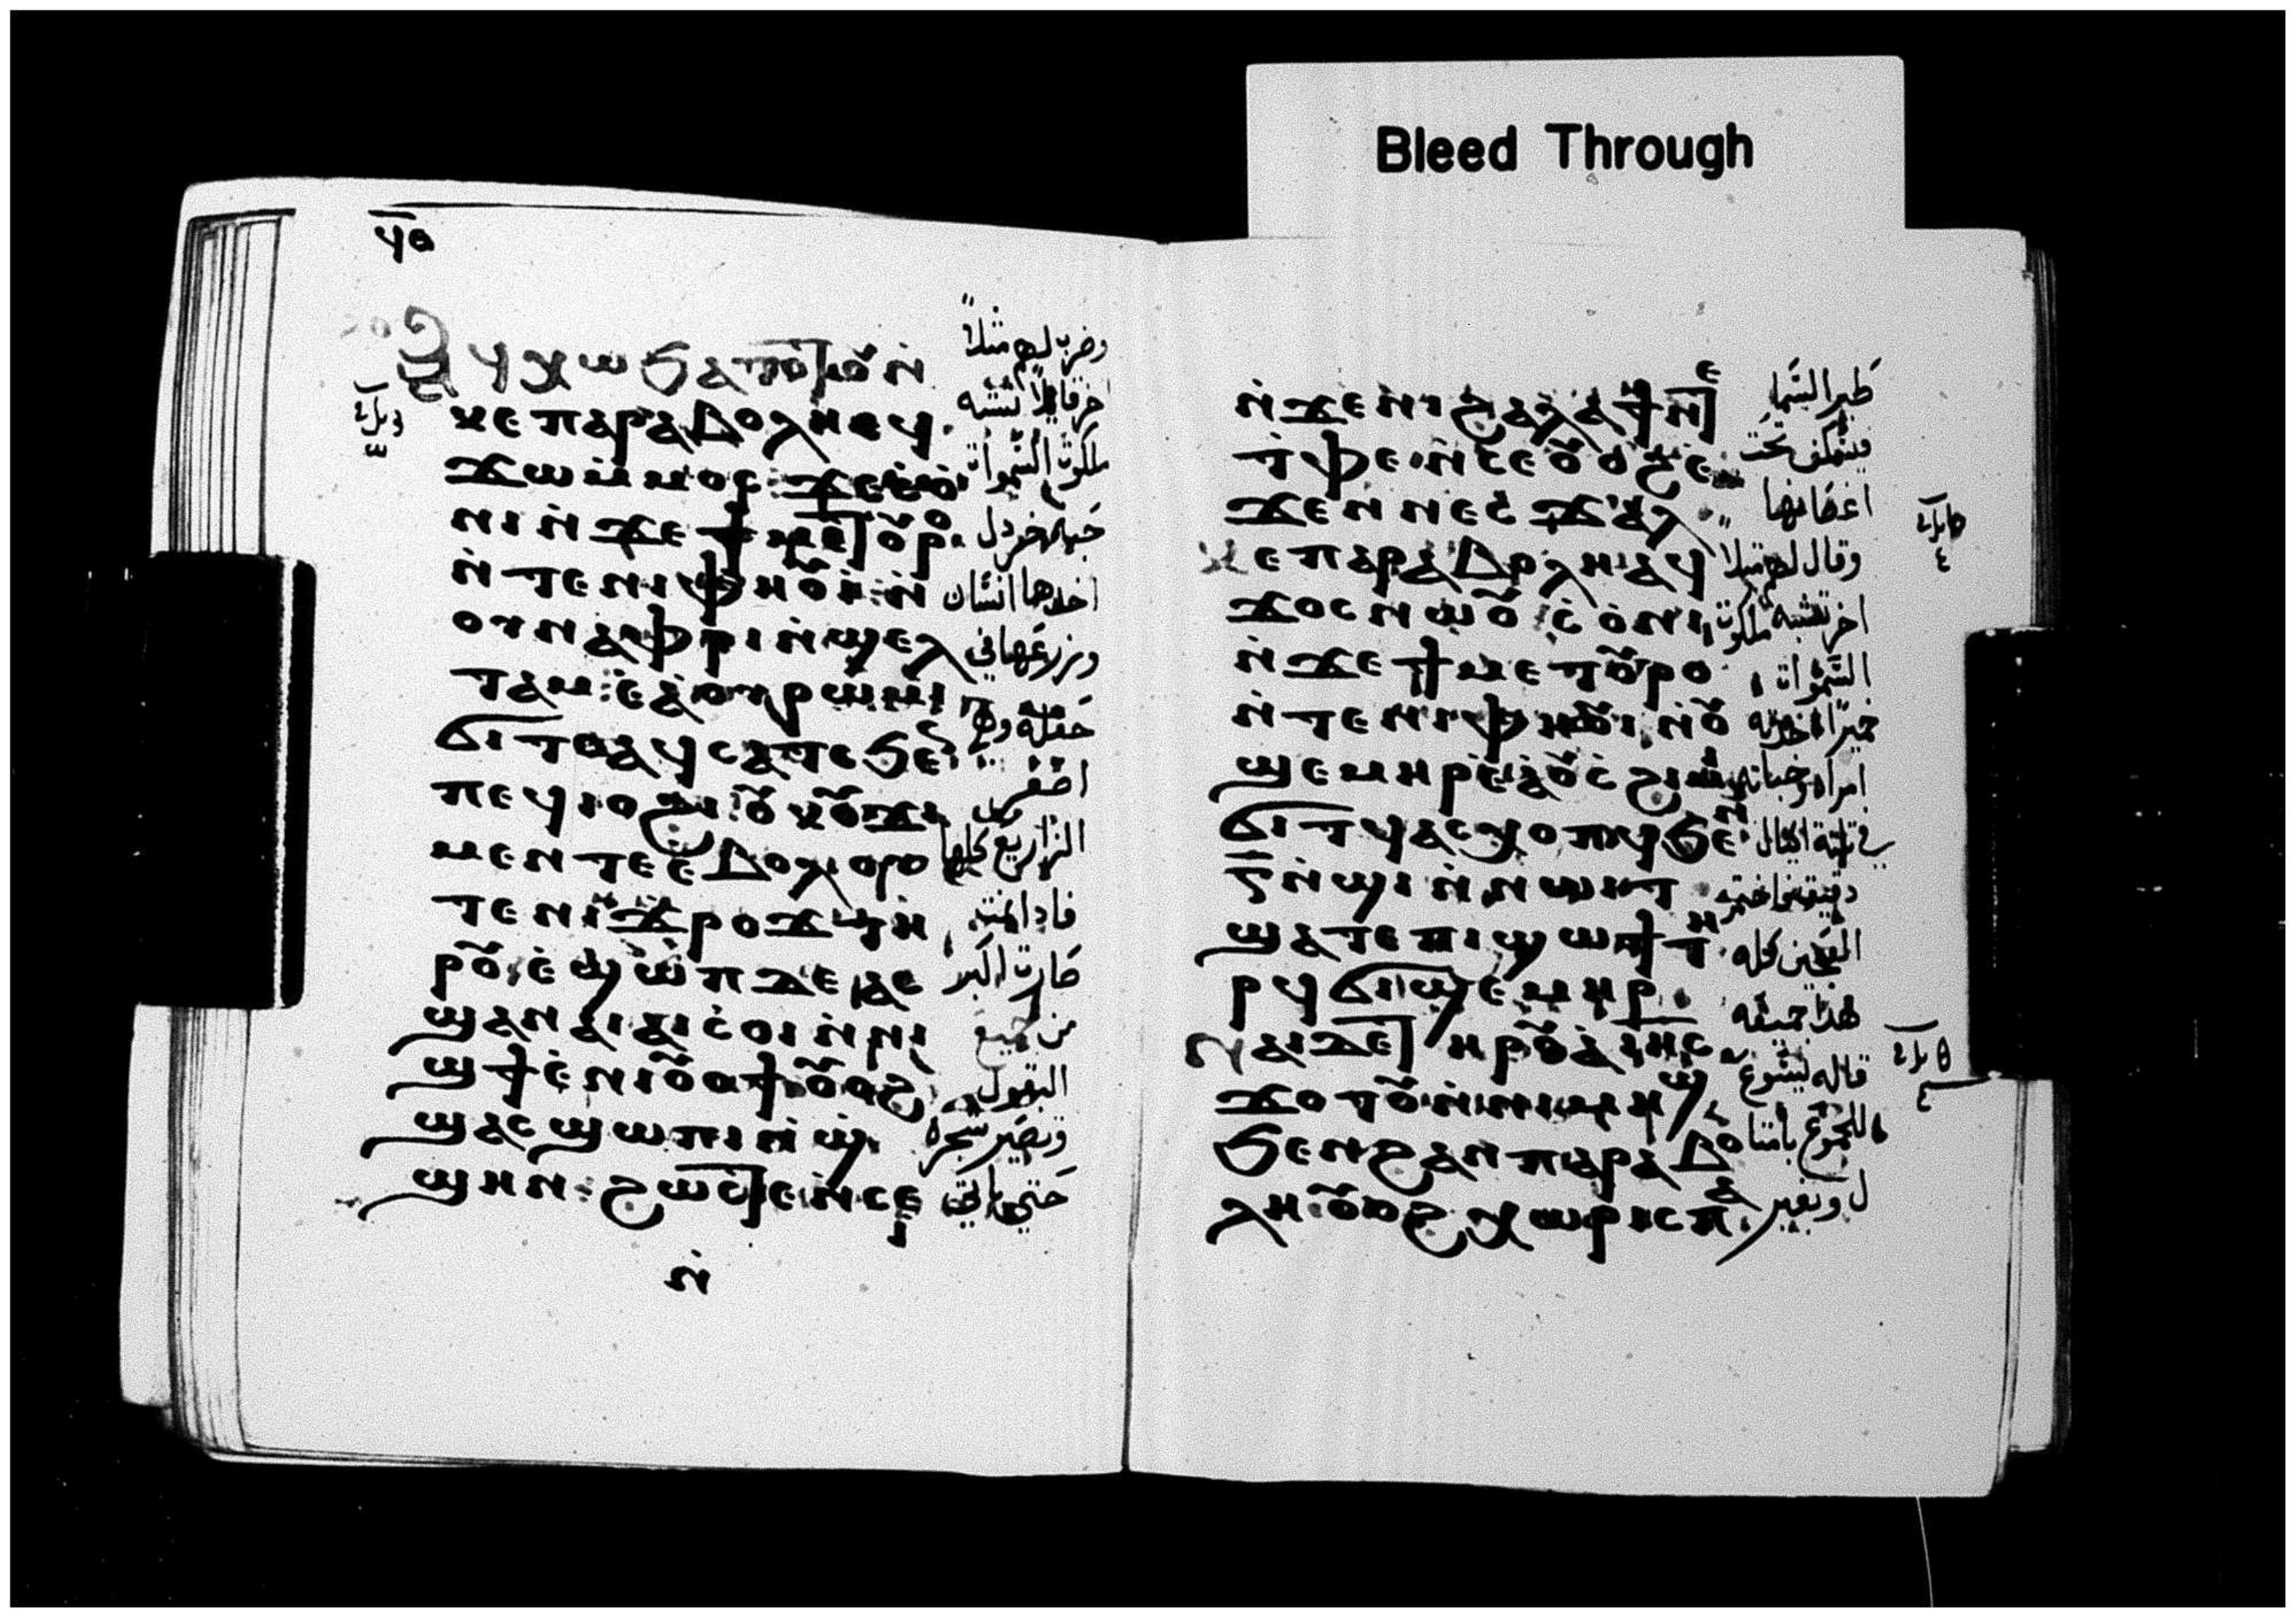 Bleed Through
ϥⲑ
ⲁϥⲭⲱ ϧⲁⲧⲟⲧⲟⲩ ⲛ̇
ⲕⲉⲡⲁⲣⲁⲃⲟⲗⲏ ⲉϥ
ϫⲱ ⲙ̇ⲙⲟⲥ ϫⲉ ⲥ̇ⲟ̇
ⲛⲓ ⲛ̇ϫⲉ ϯⲙⲉⲧⲟⲩⲣⲟ
ⲛ̇ⲧⲉ ⲛⲓⲫⲏⲟⲩⲓ̇ ⲛ̇
ⲟⲩⲛⲁⲫⲣⲓ ⲛ̇ϣⲉⲗ
ⲧⲁⲙ ⲉ̇ⲁ̇ⲟⲩⲣⲱⲙⲓ
ϭⲓⲧⲟⲩ ⲁϥⲥⲁⲧⲥ ϧⲉⲛ
ⲡⲉϥⲓⲟϩⲓ ⲟⲩⲕⲟⲩϫⲓ
ⲙⲉⲛ ⲧⲉ ⲉ̇ⲃⲟⲗ ⲟⲩ
ⲧⲉ ⲛⲓϫⲣⲟϫ ⲧⲏ
ⲣⲟⲩ ⲉ̇ϣⲱⲡ ⲇⲉ ⲁⲥ
ϣⲁⲛⲁⲓⲁⲓ ⲥ̇ⲟⲓ ⲛ̇ⲛⲓ
ϣϯ ⲉ̇ⲛⲓⲟⲩⲟϯ ⲟⲩⲟϩ
ϣⲁⲥϣⲱⲡⲓ ⲛ̇ϣ̇
ϣⲏⲛ ϩⲱⲥⲧⲉ ⲛ̇ⲥⲉⲓ
ⲛ̇
وضرب لهم مثلاً
اخر قايلاً تشبه
ملكوت السموات
حبة خردل
اخدها انسان
وزرعها في
حقله وهي
اصغر من
الزراريع كلها
فادا نمت
صارت اكبر
من جميع
البقول
وتصير شجره
حتى ياتي
ⲛ̇ϫⲉ ⲛⲓϩⲁⲗⲁϯ ⲛ̇ⲧⲉ
ⲧⲫⲉ ⲛ̇ⲥⲉⲟⲩⲟϩ
ϫⲉⲛ ⲛⲉⲥϫⲁⲗ
ⲕⲉⲡⲁⲣⲁⲃⲟⲗⲏ ⲁϥ
ϫⲟⲥ ⲛⲱⲟⲩ ⲥ̇ⲟ̇ⲛⲓ
ⲛ̇ϫⲉ ϯⲙⲉⲧⲟⲩⲣⲟ
ⲛ̇ⲧⲉ ⲛⲓⲫⲏⲟⲩⲓ ⲛ̇ⲟⲩ
ϣⲉⲙⲏⲣ ⲉ̇ⲁ̇ⲟⲩⲥ̇ϩⲓⲙⲓ
ϭⲓⲧϥ ⲁⲥⲭⲟⲡϥ ϧⲉⲛ
ⲅ̅ ⲛ̇ϣⲓ ⲛ̇ⲛⲱⲓⲧ
ϣⲁⲧⲉ ⲡⲓϣⲱϯ ⲧⲏ
ⲣϥ ϭⲓϣⲉⲙⲏⲣ
ⲛⲁⲓ ⲇⲉ ⲧⲏⲣⲟⲩ ⲁ̇ ⲓⲏⲥ
ϫⲟⲧⲟⲩ ⲛ̇ⲛⲓⲙⲏϣ
ϧⲉⲛ ϩⲁⲛⲡⲁⲣⲁⲃⲟ
ⲗⲏ ⲟⲩⲟϩ ⲭⲱⲣⲓⲥ ⲡⲁ
طير السما
فيسكن تحت
اغصانها
وقال لهم مثلا
اخر تشبه ملكوت
السموات
خميراً اخدته
امراه وخباته
في تلتة اكيال
دقيق فاختمر
العجين كله
هدا جميعه
قاله يسوع
للجموع بامثا
ل وبغير